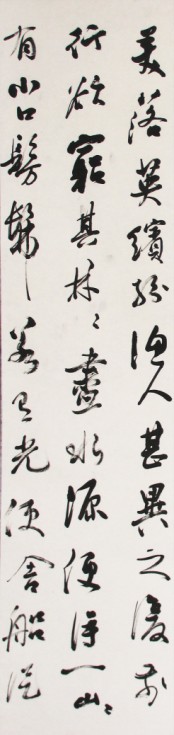 美落英缤纷渔人甚異之復前
行欲窮其林〻盡水源便得一山〻
有小口髣髴若有光便舍船從